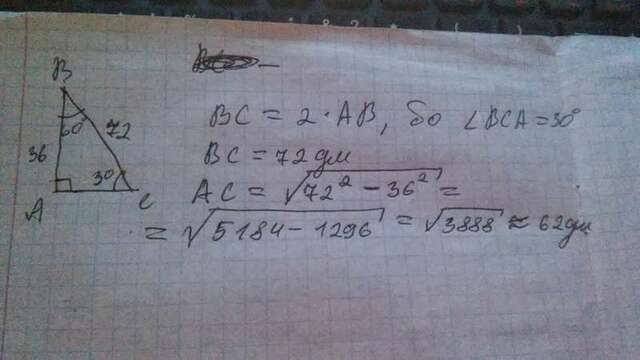 B
60°
72
36
30
A
C
BC = 2·AB, бо ∠BCA=30°
BC = 72дм
AC = √72² − 36² =
= √5184 − 1296 = √3888 ≈ 62дм